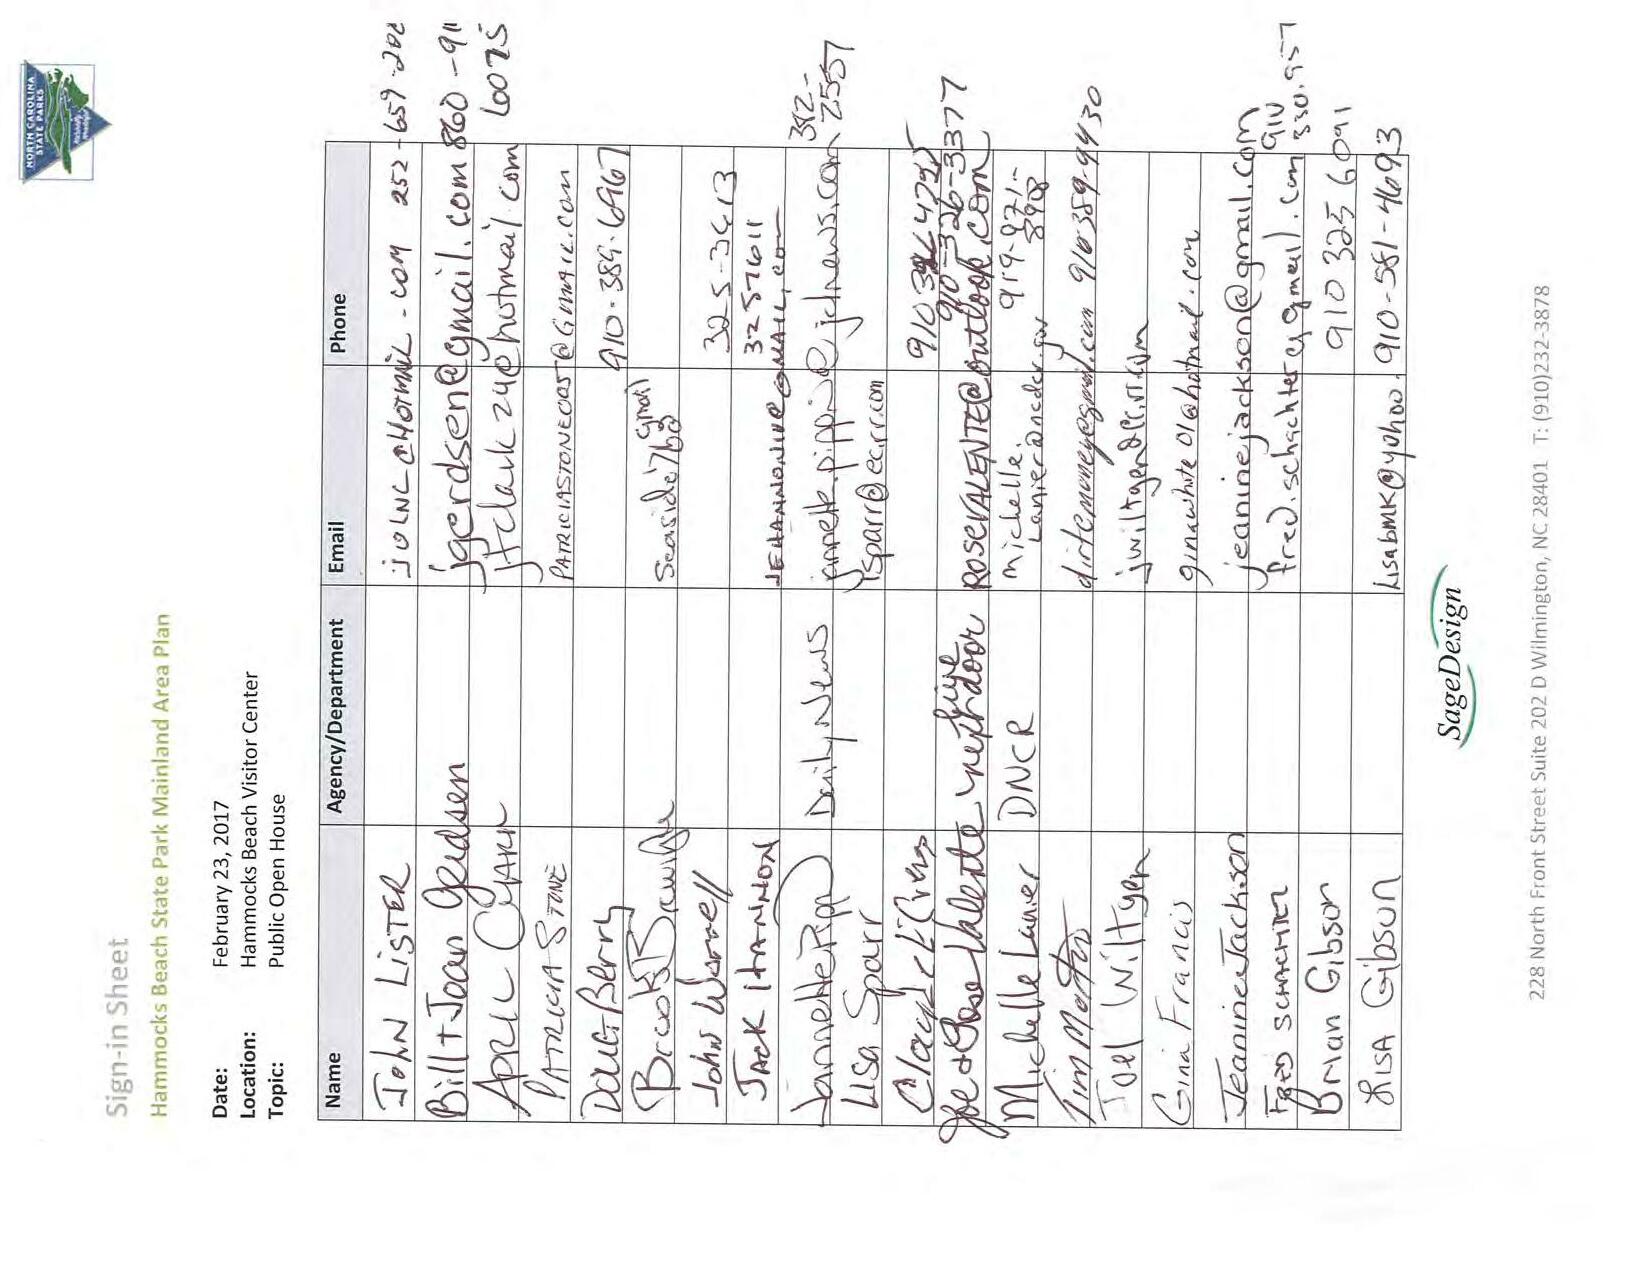 NORTH CAROLINA
STATE PARKS
Naturally Wonderful
Sign-in Sheet
Hammocks Beach State Park Mainland Area Plan
Date: February 23, 2017
Location: Hammocks Beach Visitor Center
Topic: Public Open House
Name Agency/Department Email Phone
JOHN LISTER 252-659-202
Bill + Joan Gerdsen jgerdsen@gmail.com 860-911
6075
APRIL CLARK jtclark24@hotmail.com
PATRICIA STONE PATRICIASTONECOAST@GMAIL.COM
DOUG Berry 910-389-6967
seaside7b@gmail
John Worrell 325-3413
JACK HANNON JEHANNONJR@GMAIL.COM 3257611
Jannette Pippin Daily News jannette.pippin@jdnews.com 382-2557
Lisa Sparr lsparr@ec.rr.com
910 326 4735
Joe & Rose Valente live next door ROSEVALENTE@outlook.com 910-326-3377
Michelle Lanier DNCR michelle.lanier@ncdcr.gov 919-971-8908
Tim Morton 910 389-9430
Joel Wiltgen jwiltgen@ec.rr.com
Gina Francis ginawhite01@hotmail.com
Jeanine Jackson jeaninejackson@gmail.com
FRED SCHACHTER fred.schachter@gmail.com 910 330.957
Brian Gibson 910 325 6091
LISA Gibson Lisabmk@yahoo. 910-581-4693
SageDesign
228 North Front Street Suite 202 D Wilmington, NC 28401 T: (910)232-3878